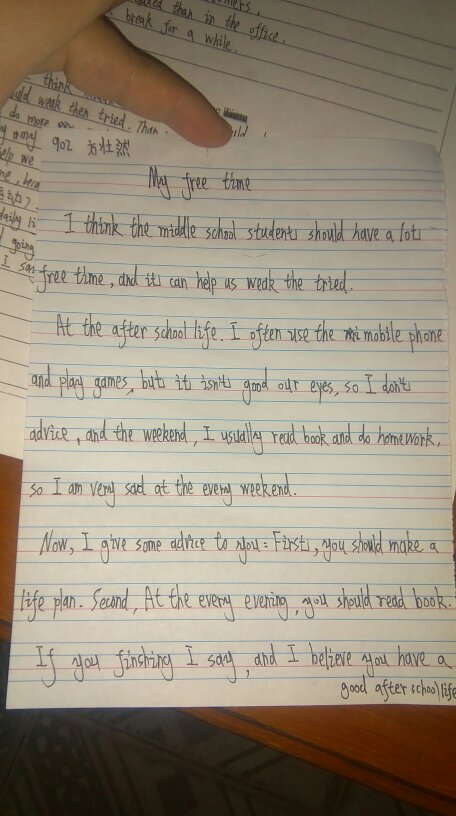 axed than in the office.
break for a while.
think
uld weak then tried. Than
do more
902 方壮然
My free time
I think the middle school students should have a lots
free time, and it can help us weak the tried.
At the after school life. I often use the mobile phone
and play games, but it isn't good our eyes, so I don't
advice, and the weekend, I usually read book and do homework,
so I am very sad at the every weekend.
Now, I give some advice to you: First, you should make a
life plan. Second, At the every evening, you should read book.
If you finshing I say, and I believe you have a
good after school life